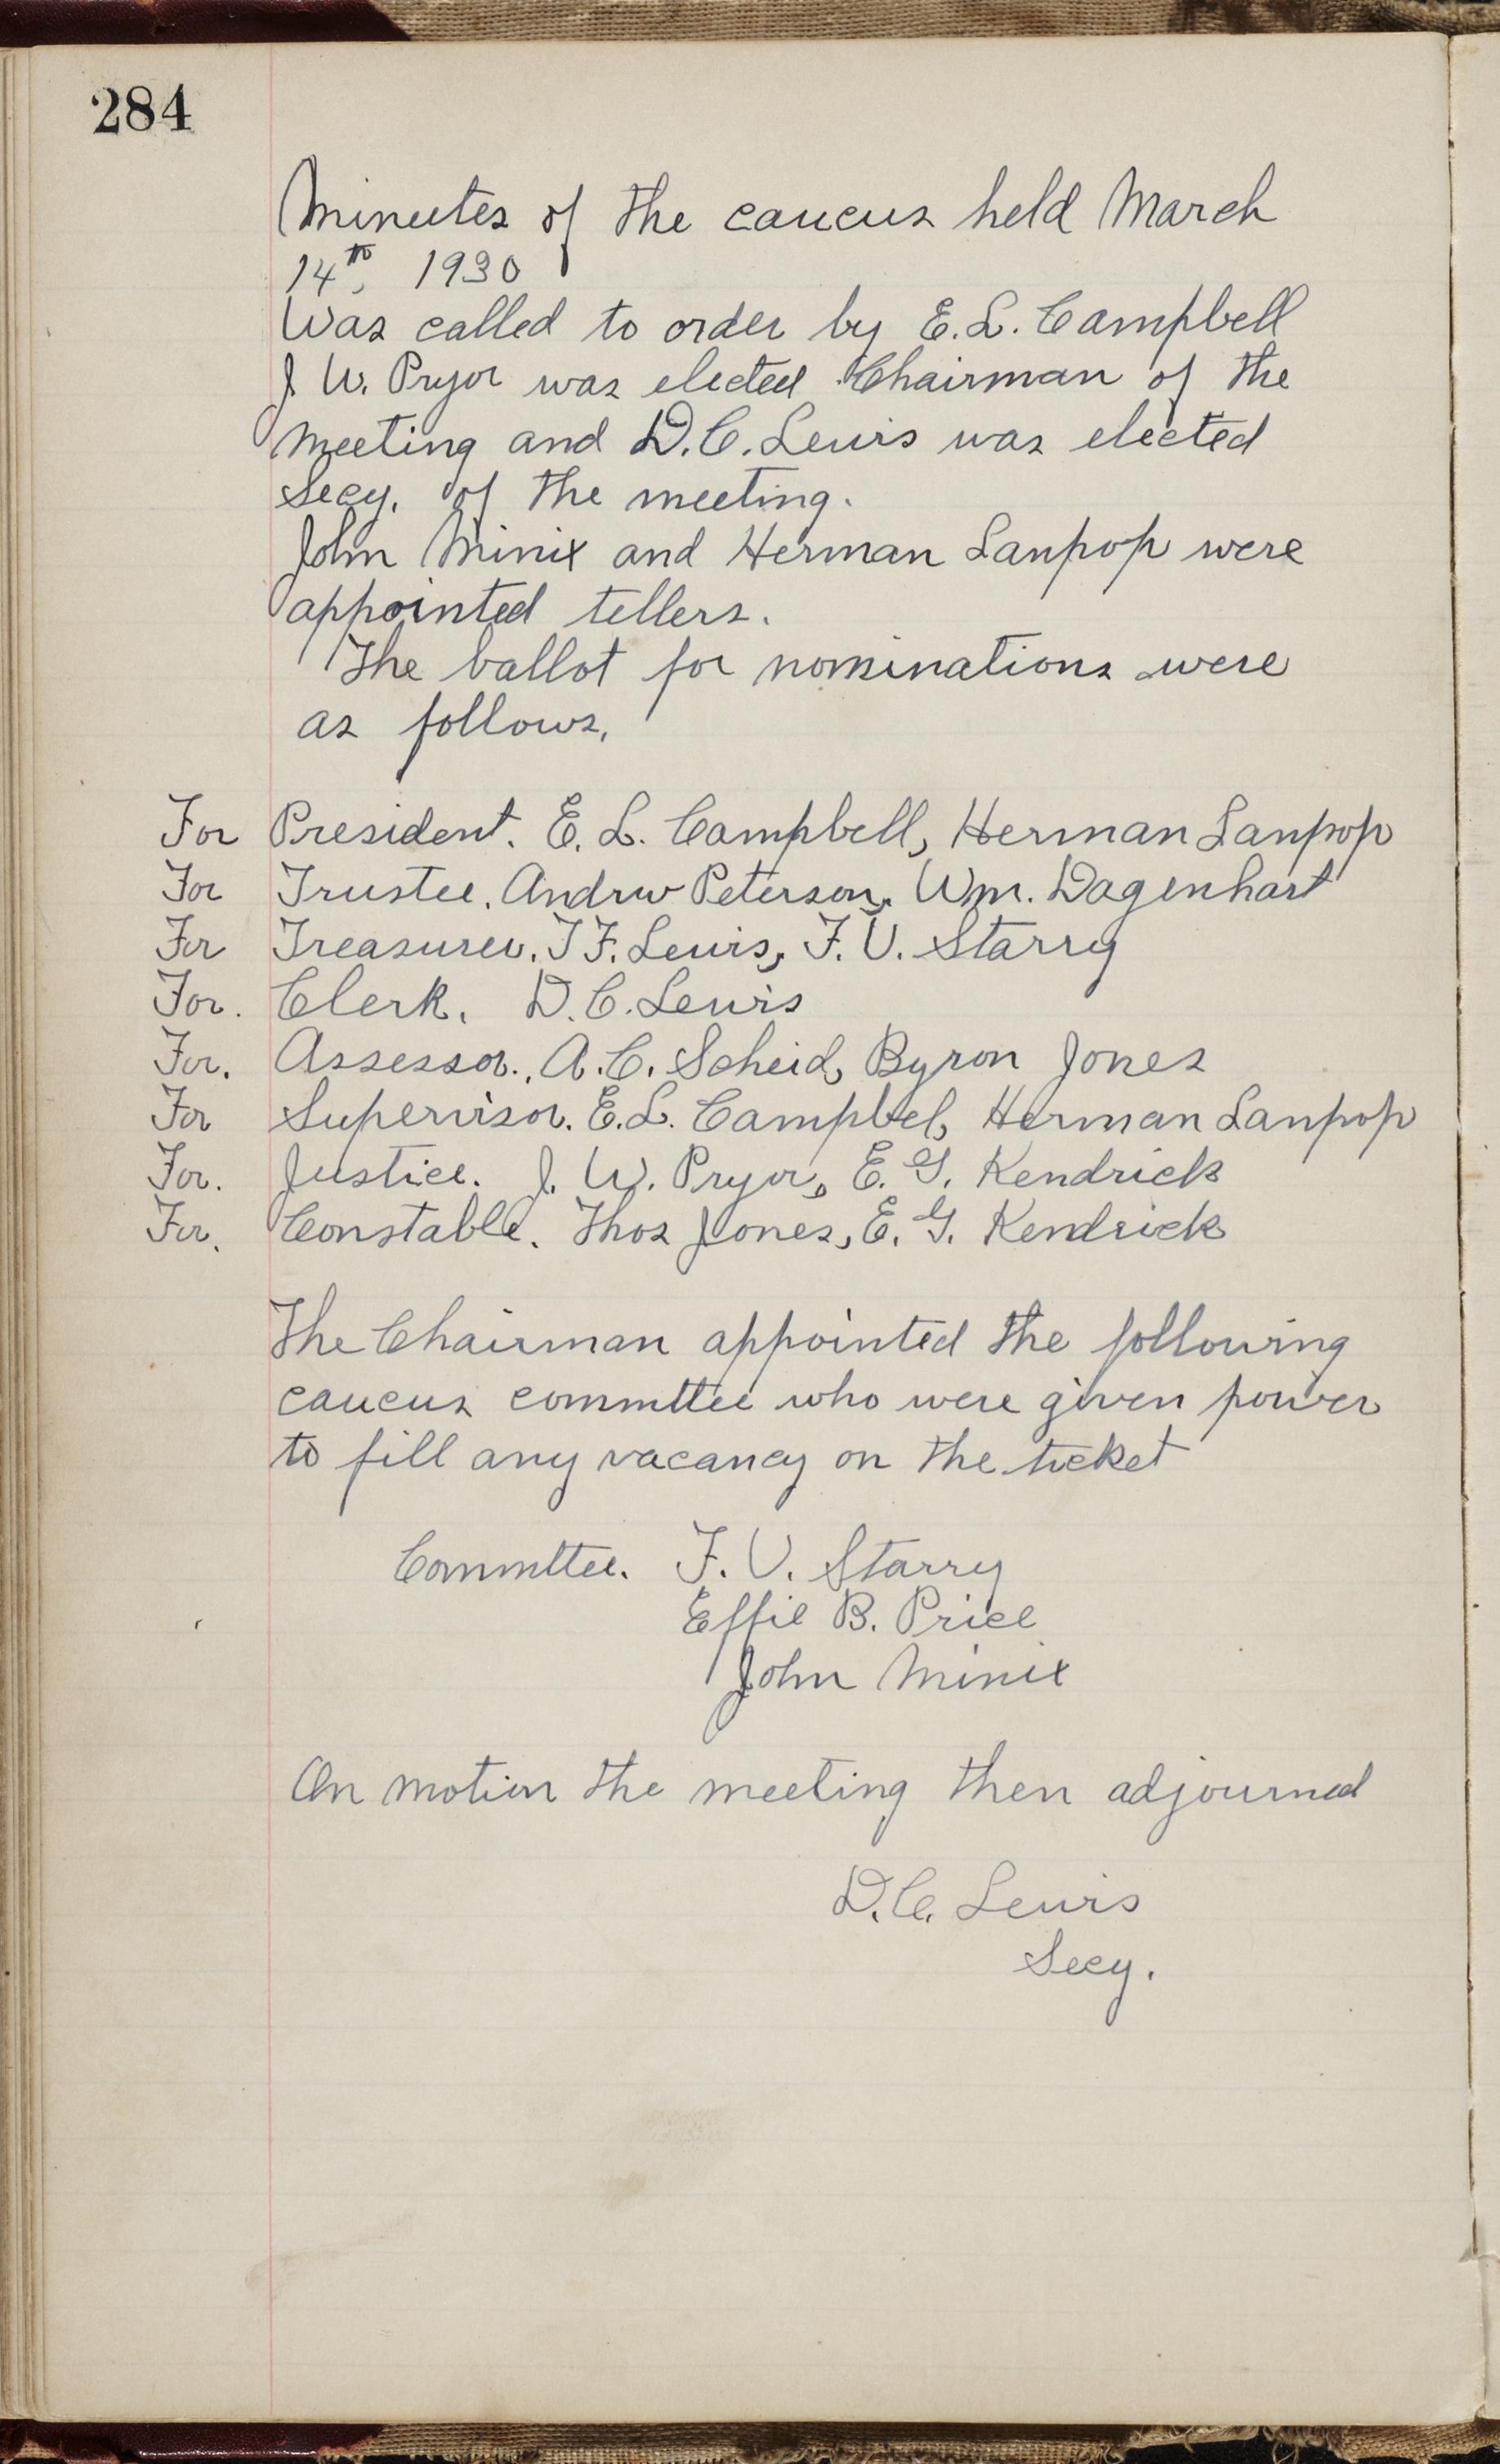 284
Minutes of the caucus held March
14th, 1930
Was called to order by E.L. Campbell
J W. Pryor was elected Chairman of the
meeting and D.C. Lewis was elected
Secy. of the meeting.
John Minix and Herman Lanpop were
appointed tellers.
The ballot for nominations were
as follows,
For President. E. L. Campbell, Herman Lanpop
For Trustee. Andrw Peterson, Wm. Dagenhart
For Treasurer. T F. Lewis, F. V. Starry
For. Clerk. D.C. Lewis
For. Assessor., A.C. Scheid, Byron Jones
For Supervisor. E.L. Campbel, Herman Lanpop
For. Justice. J. W. Pryor, E. G. Kendrick
For. Constable. Thos Jones, E. G. Kendrick
The Chairman appointed the following
caucus committee who were given power
to fill any vacancy on the ticket
Committee. F. V. Starry
Effie B. Price
John Minix
On motion the meeting then adjourned
D.C. Lewis
Secy.